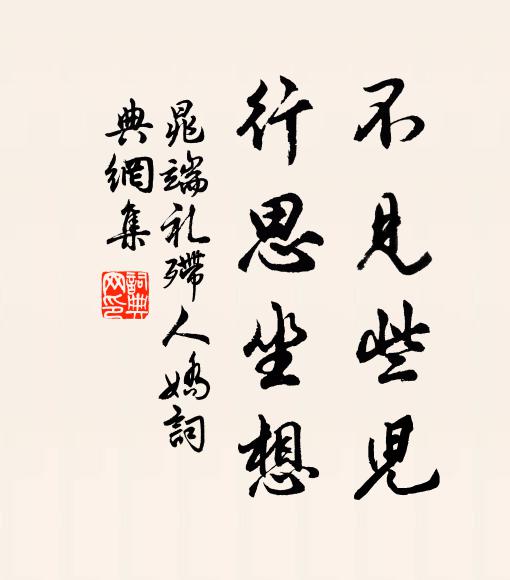 不見些兒
行思坐想
晁端礼殢人嬌詞
典網集
詞典
网印